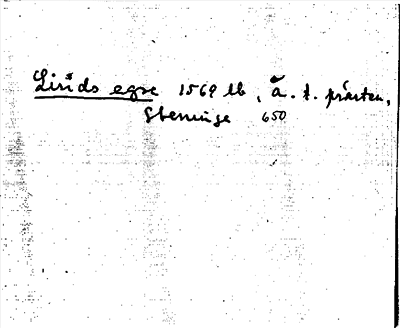 Lirids egre 1569 lb, å. t. prästen,
Steninge 650